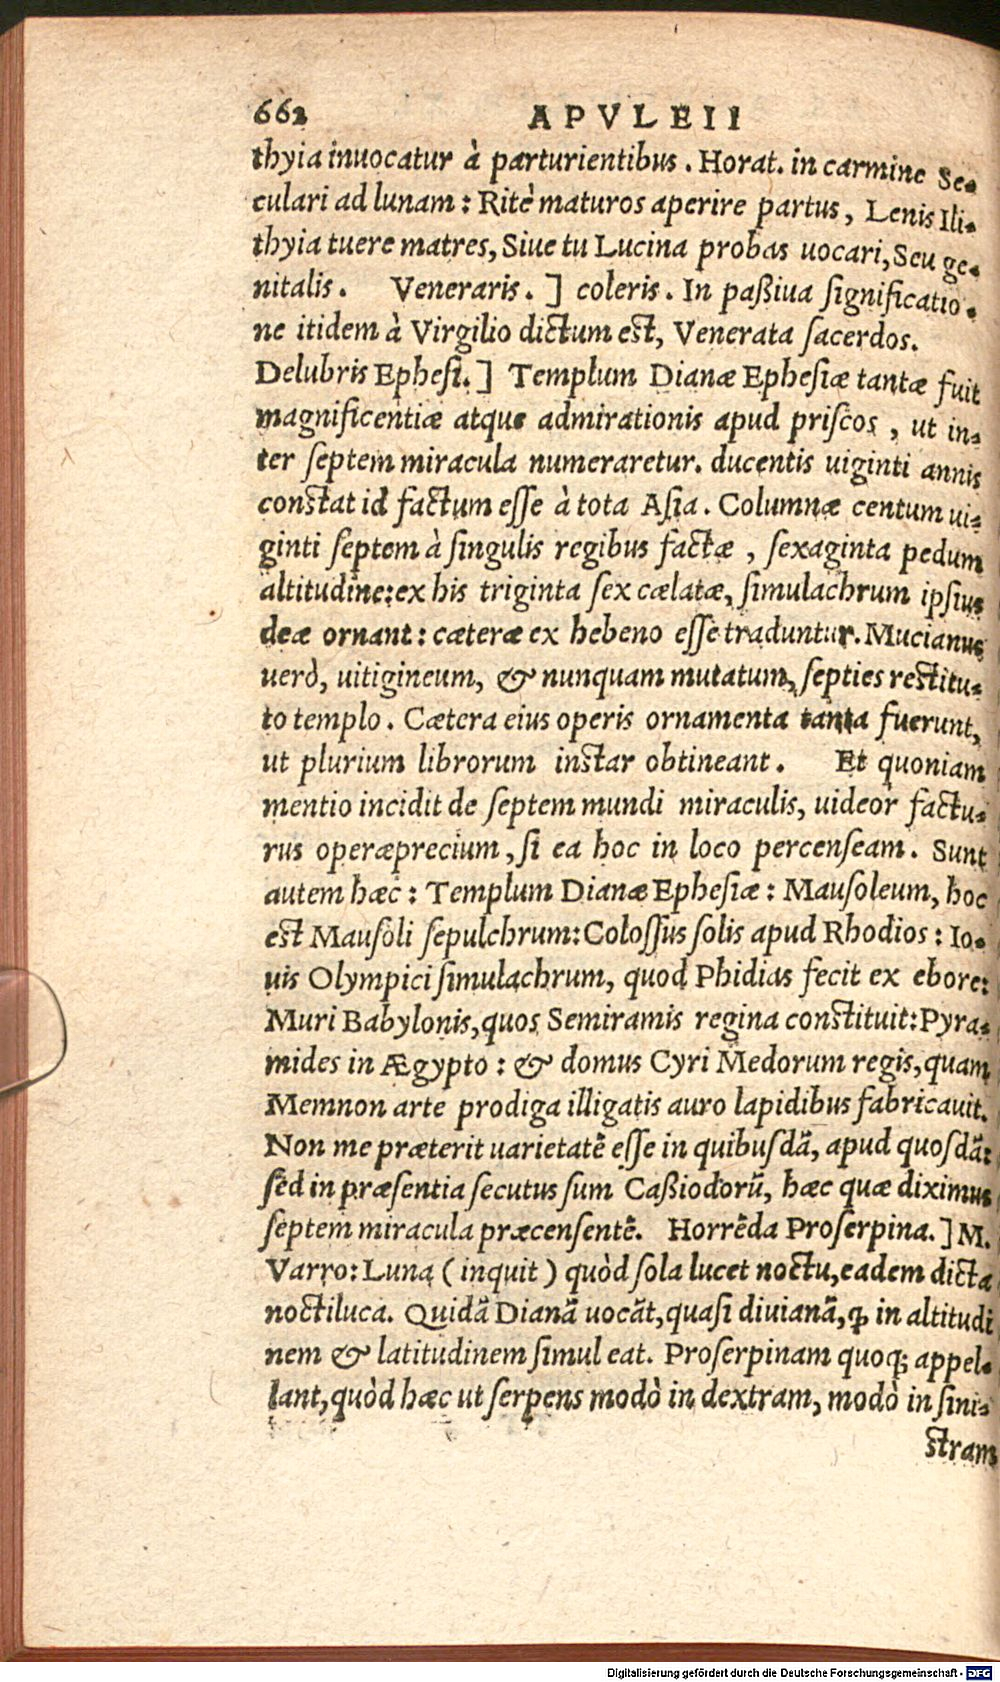 662 APVLEII
thyia inuocatur à parturientibus. Horat. in carmine Se-
culari ad lunam: Ritè maturos aperire partus, Lenis Ili-
thyia tuere matres, Siue tu Lucina probas uocari, Seu ge-
nitalis. Veneraris.] coleris. In paßiua significatio-
ne itidem à Virgilio dictum est, Venerata sacerdos.
Delubris Ephesi.] Templum Dianæ Ephesiæ tantæ fuit
magnificentiæ atque admirationis apud priscos, ut in-
ter septem miracula numeraretur. ducentis uiginti annis
constat id factum esse à tota Asia. Columnæ centum ui-
ginti septem à singulis regibus factæ, sexaginta pedum
altitudine: ex his triginta sex cælatæ, simulachrum ipsius
deæ ornant: cæteræ ex hebeno esse traduntur. Mucianus
uerò, uitigineum, & nunquam mutatum, septies restitu-
to templo. Cætera eius operis ornamenta tanta fuerunt,
ut plurium librorum instar obtineant. Et quoniam
mentio incidit de septem mundi miraculis, uideor factu-
rus operæprecium, si ea hoc in loco percenseam. Sunt
autem hæc: Templum Dianæ Ephesiæ: Mausoleum, hoc
est Mausoli sepulchrum: Colossus solis apud Rhodios: Io-
uis Olympici simulachrum, quod Phidias fecit ex ebore:
Muri Babylonis, quos Semiramis regina constituit: Pyra-
mides in Ægypto: & domus Cyri Medorum regis, quam
Memnon arte prodiga illigatis auro lapidibus fabricauit.
Non me præterit uarietatē esse in quibusdā, apud quosdā:
sed in præsentia secutus sum Caßiodorū, hæc quæ diximus
septem miracula præcensentē. Horrēda Proserpina.] M.
Varro: Luna (inquit) quòd sola lucet noctu, eadem dicta
noctiluca. Quidā Dianā uocāt, quasi diuianā, ꝙ in altitudi
nem & latitudinem simul eat. Proserpinam quoq; appel-
lant, quòd hæc ut serpens modò in dextram, modò in sini-
stram
Digitalisierung gefördert durch die Deutsche Forschungsgemeinschaft - DFG